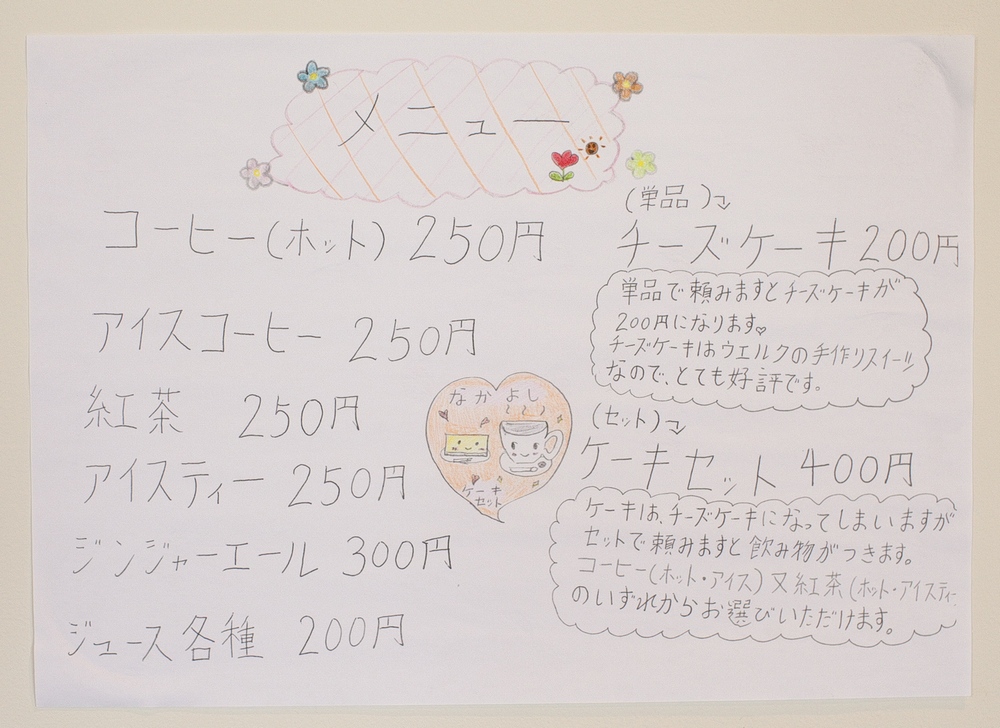 メニュー
コーヒー(ホット) 250円
アイスコーヒー 250円
紅茶 250円
アイスティー 250円
ジンジャーエール 300円
ジュース各種 200円
なかよし
ケーキ
セット
(単品)
チーズケーキ 200円
単品で頼みますとチーズケーキが
200円になります。
チーズケーキはウエルクの手作りスイーツ
なので、とても好評です。
(セット)
ケーキセット 400円
ケーキは、チーズケーキになってしまいますが
セットで頼みますと飲み物がつきます。
コーヒー(ホット・アイス)又紅茶(ホット・アイスティー
のいずれからお選びいただけます。